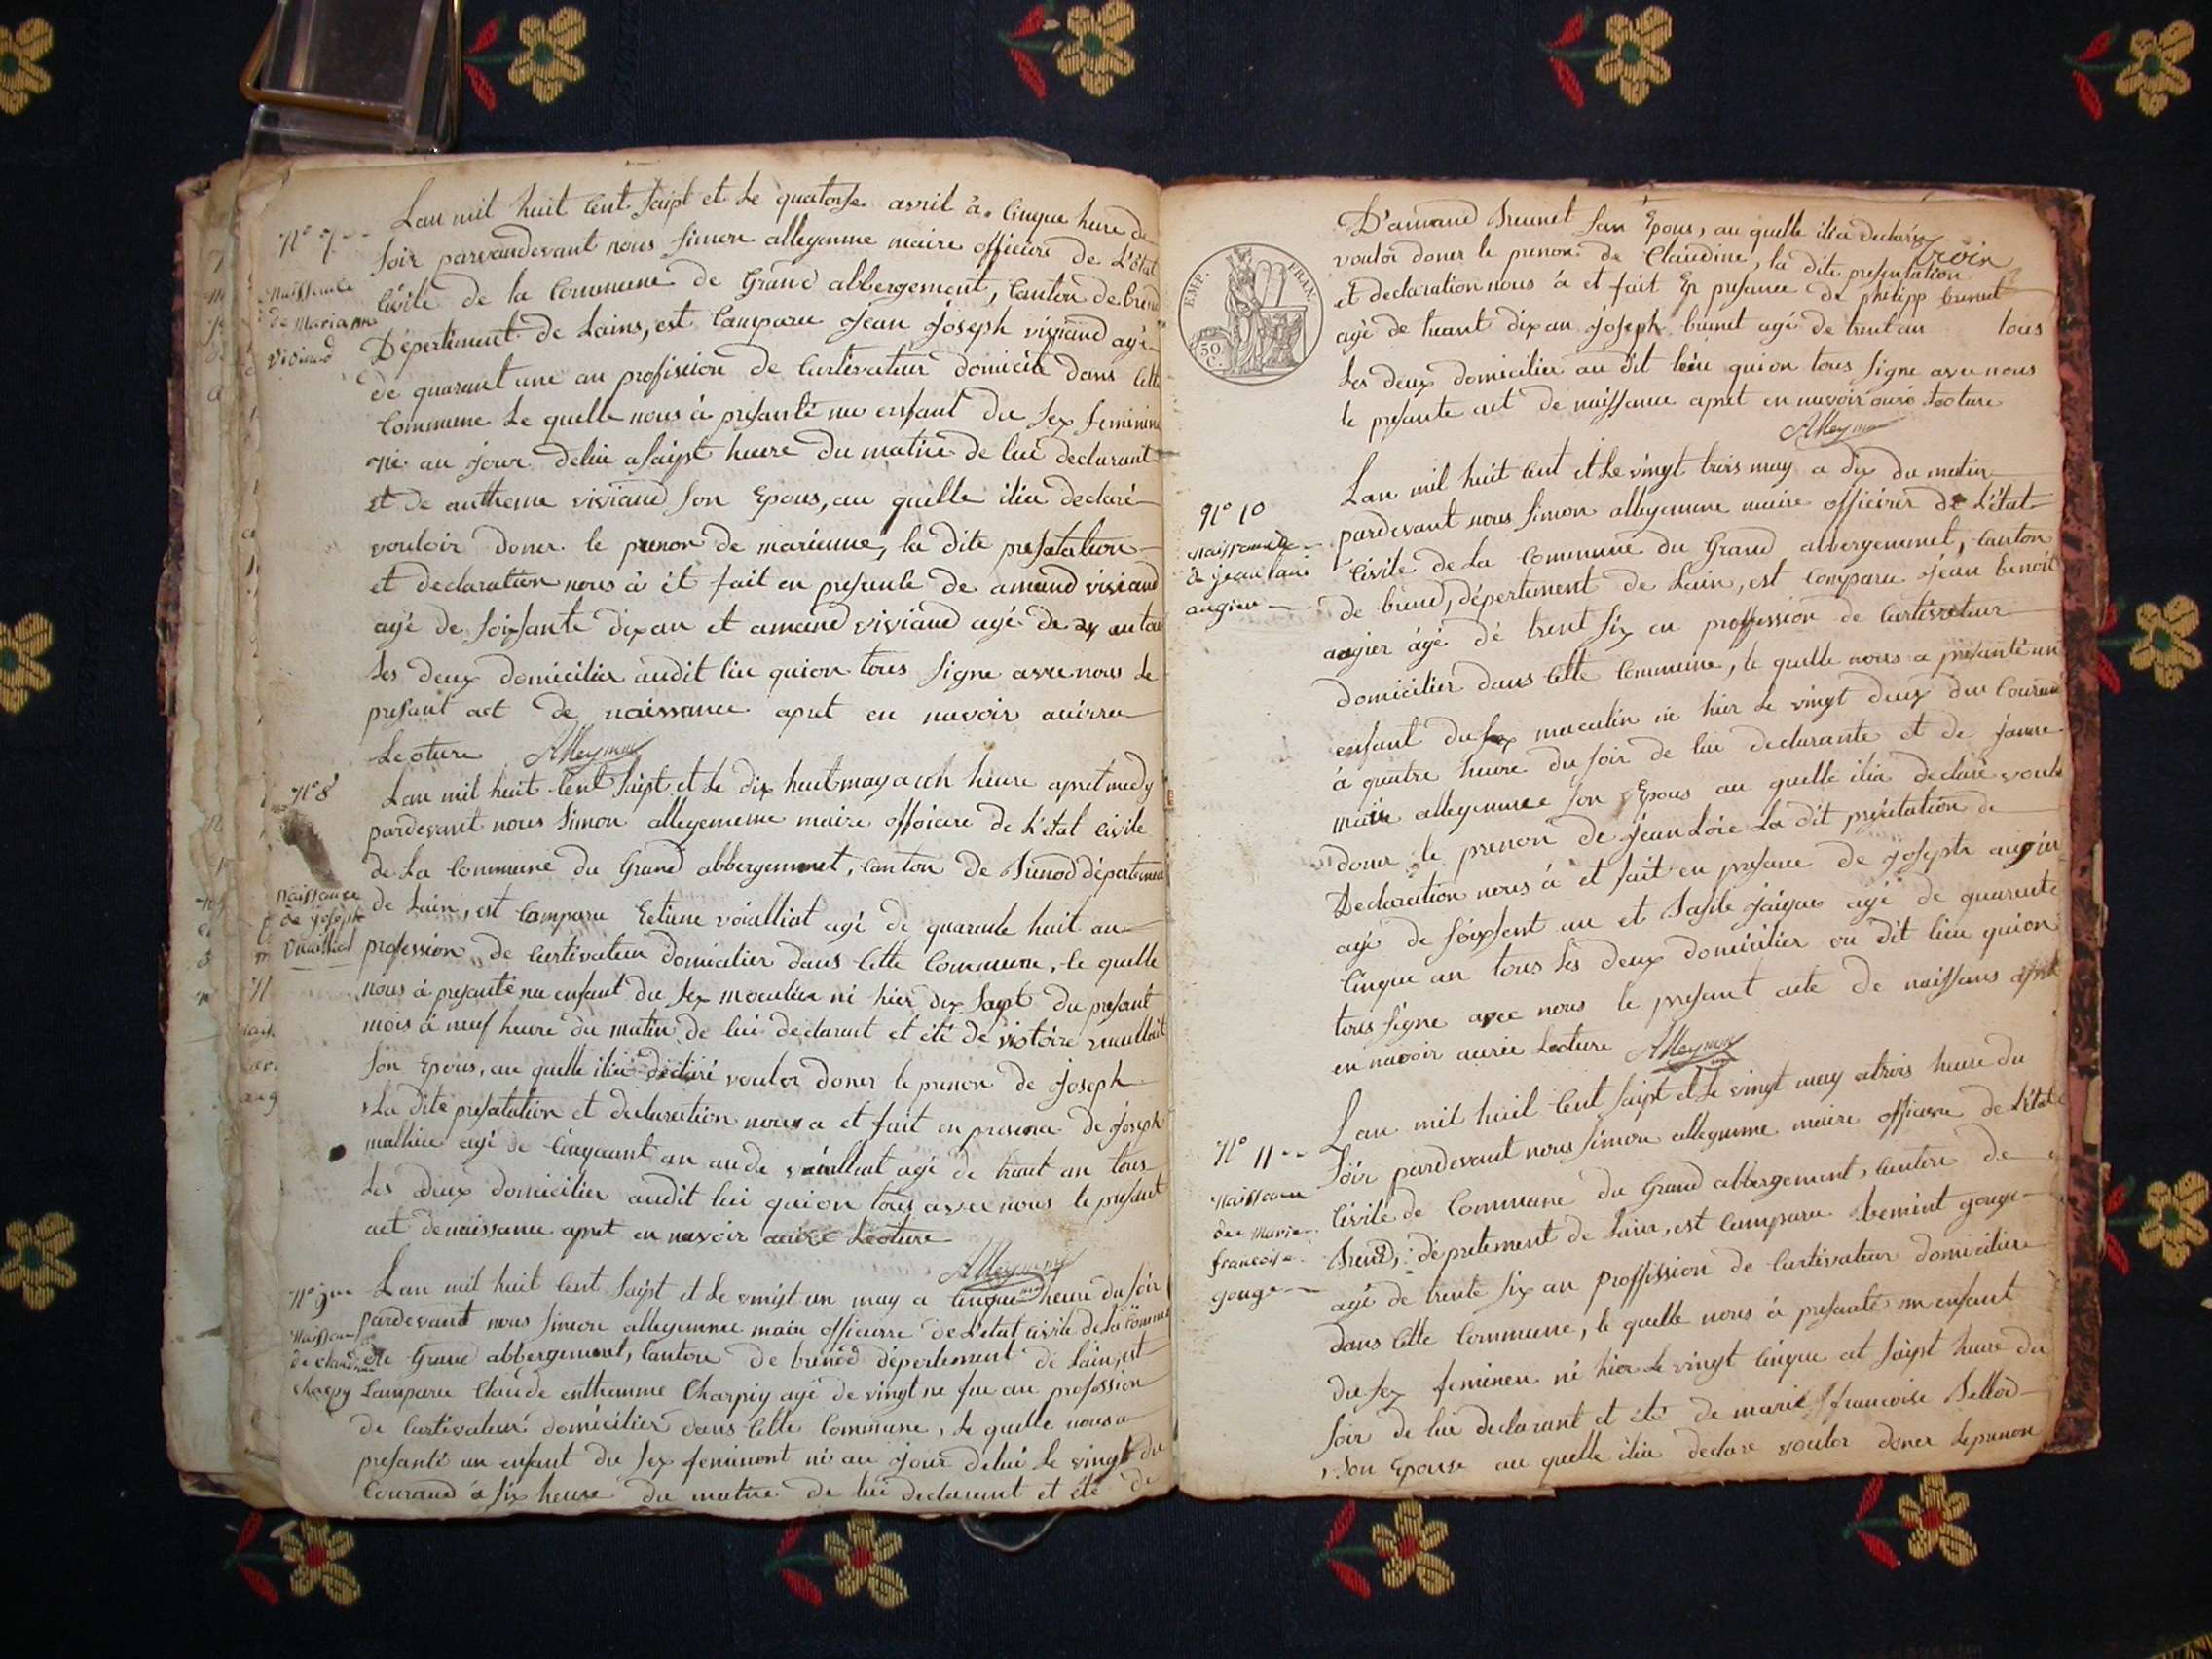 N° 7
Naissance
de Marianne
Viviand
Lan mil huit Cent Saipt et Le quatorse avril à Cinque heure de
Soir parvandevant nous Simon allegemme maire officiere de L'Etat
Civile de la Commune de Grand abbergement, Canton de brend
Département de Lains, est Comparu Jean Joseph viviand agé
de quarant une an profission de Curtivateur domicile dans Cette
Commune Le quelle nous à présanté nu enfant du Sex feminine
né au jour delui a Saipt heure du matin de lui declarant
et de antheme viviand Son Epous, au quille ilia declaré
vouloir doner le prenon de marianne, la dite presatation
et declaration nous à èt fait en presance de amand viviand
agé de Soissante dix an et amand viviand agé de 24 an tous
Les deux domicilier audit lieu quion tous Signe avec nous Le
presant act de naissance apret en navoir auirre
Lecture Alleymme
N° 8
Naissance
de joseph
Vuailliat
Lan mil heit Cent Saipt et Le dix heut may a un heure apret medy
pardevant nous Simon allegememe maire officiere de L'état Civile
de La Commune du Grand abbergemmet, Canton de Brenod départemen
de Lain, est Comparu Eetiene voialliat agé de quarante huit an
profession de Curtivateur domicilier dans Cette Commune, le quelle
nous à presanté nu enfant du Sex maculin né hier dix Saipt du presant
mois à neuf heure du matin de lui declarant et été de victoire vuailliat
Son Epous, au quelle ilia declaré voulor doner le prenon de Joseph
La dite presatation et declaration nous a et fait en presence de Joseph
mathieu agé de Cinquant an an de vuailliat agé de trant an tous
Les deux domicilier audit lui quion tous avec nous le presant
act denaissance apret en navoir auire Lecture
Alleymme
N° 9
Naissance
de claudine
charpy
Lan mil huit Cent Saipt et Le vingt un may a Cinque heure du Soir
pardevant nous Simon allegemme maire officierre de L'état Civile de La Comme
du Grand abbergement, Canton de brenod département de Lain, est
Comparu Claude anthemme Charpiy agé de vingt ne fue an profossion
de Curtivateur domicilier dans Cette Commune, Le quelle nous a
presanté un enfant du Sex feminont né au jour delui Le vingt du
Courand à Six heure du matin de lui declarant et été de
EMP. FRAN.
50 C.
D'amand Brunet San Epous, au quelle ilia declaré
vouloi doner le prenon de Claudine, la dite presentation
et declaration nous à et fait En presance de philipp brunet
agé de trant dix an joseph brunet agé de trent an tous
Les deux domicilier au dit leiu quion tous Signe avec nous
le presante act de naissance apret en navoir ouiré Lecture
Alleymme
N° 10
Naissance
de jean Loui
augier
Lan mil huit Cent et Le vingt trois may a dix du matin
pardevant nous Simon allegemme maire officirer de L'état
Civile de La Commune du Grand abbergemmet, Canton
de brend, département de Lain, est Comparu Jean benoit
augier agé de trent Six an proffession de Curtivateur
domicilier dans Cette Commune, le quelle nous a presanté un
enfant du Sex maculin né hier Le vingt deux du Courand
à quatre heure du Soir de lui declarante et de Janne
marie allegemme Son Epous au quelle ilia declaré voulo
doner le prenon de Jean Loie La dit presetation de
Declaration nous à et fait en presance de Joseph augier
agé de Soissent an et Basile Jaique agé de quarente
Cinque an tous Les deux domicilier ou dit lieu quion
tous Signe avec nous le presant acte de naissans apret
en navoir aurie Lecture Alleymme
N° 11
Naissance
de Marie
francoise
gouge
Lan mil huit Cent Saipt et Le vingt may a trois heure du
Soir pardevant nous Simon allegemme maire officiere de L'état
Civile de Commune du Grand abbergement, Canton de
Brend, depretement de Lain, est Comparu benoint gouge
agé de trente Six an proffission de Curtivateur domicilier
dans Cette Commune, le quelle nous à presanté un enfant
du Sex feminen né hier Le vingt Cinque at Saipt heure du
Soir de lui declarant et été de marie francoise Billod
Son Epouse au quelle ilia declare voulor doner Leprenon